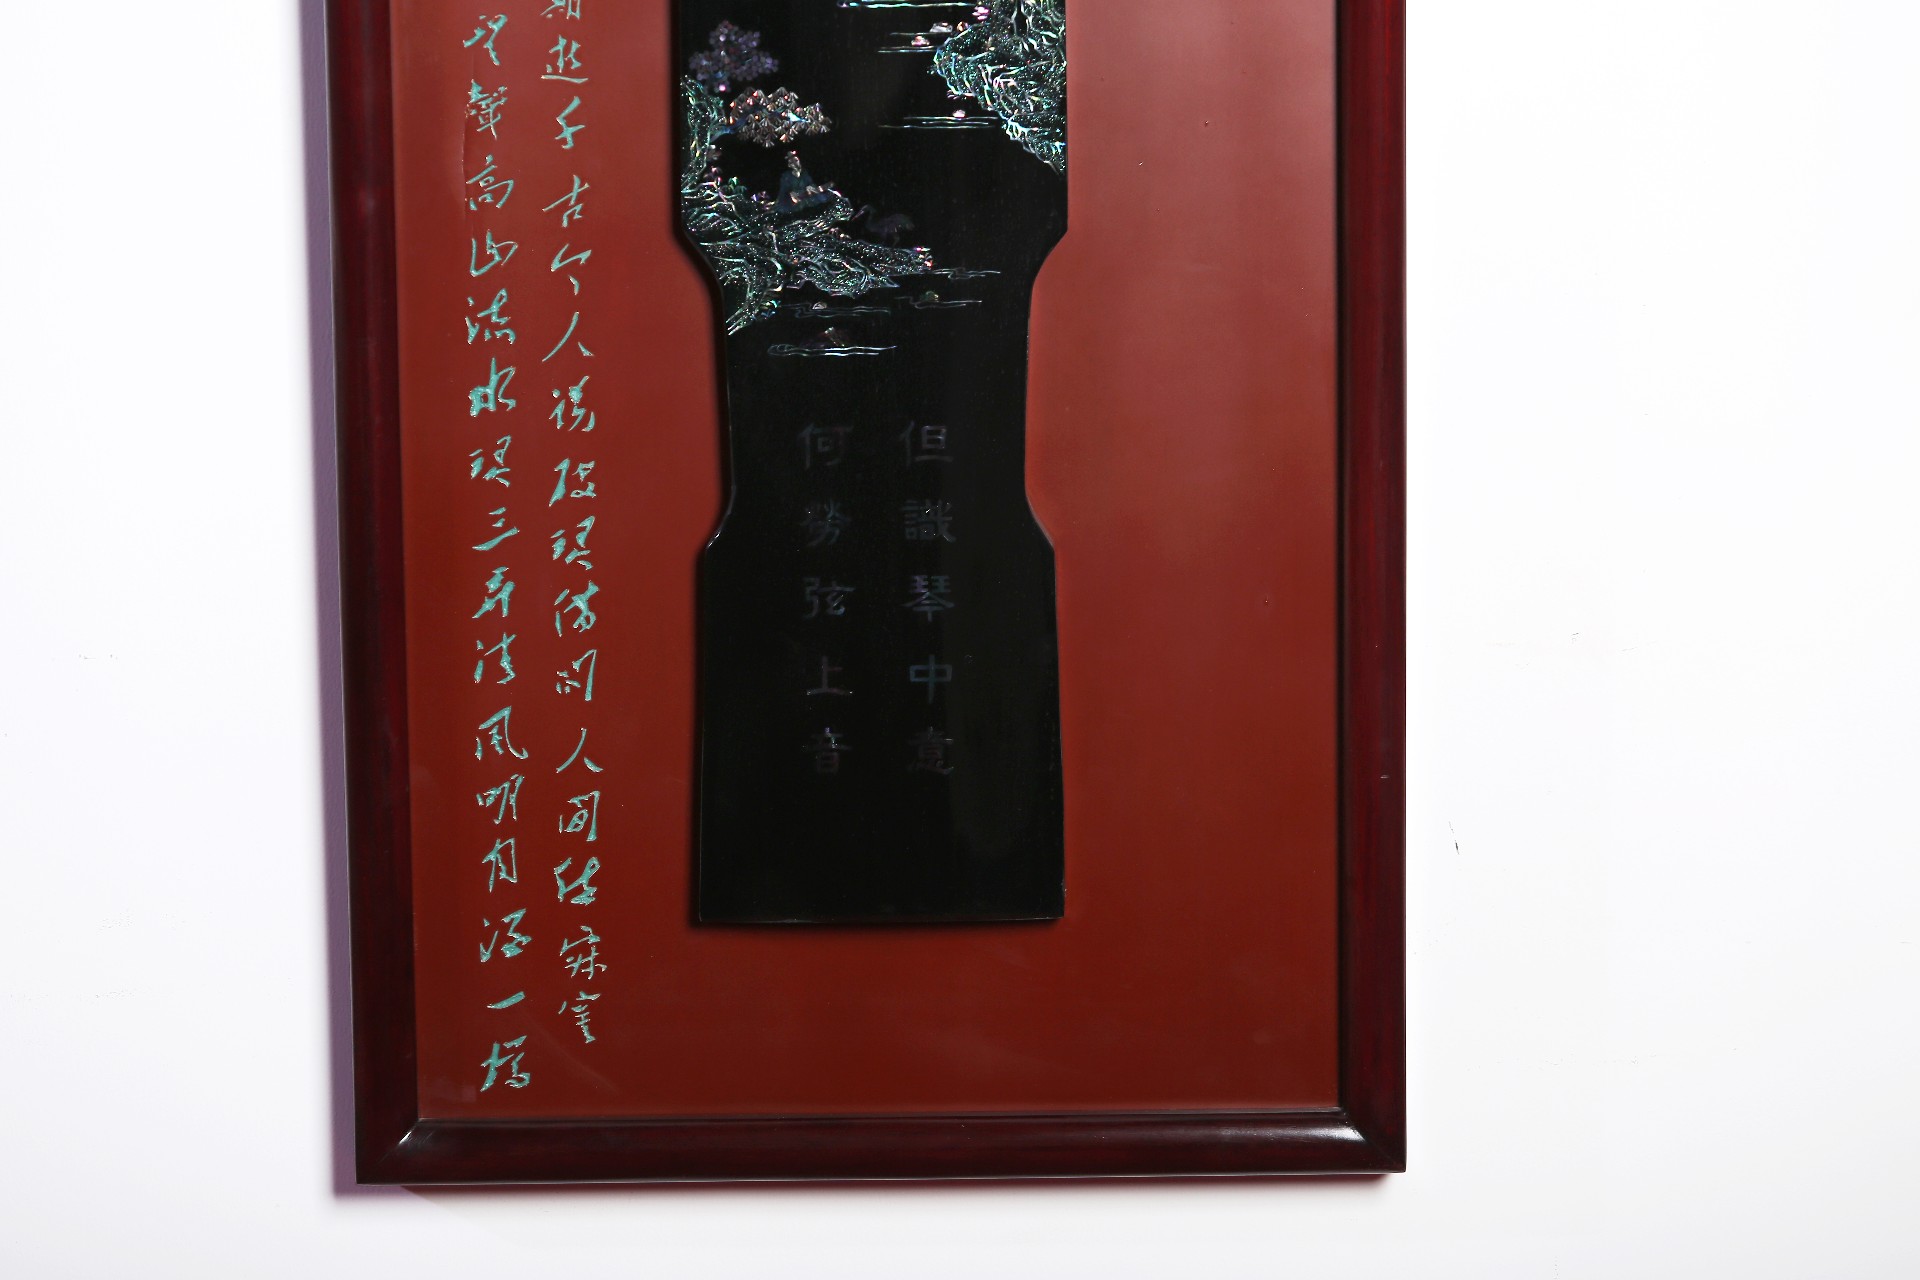 但識琴中意
何勞弦上音
千古今人說破琴借問人間寂寞
聲高山流水琴三弄清風明月酒一樽